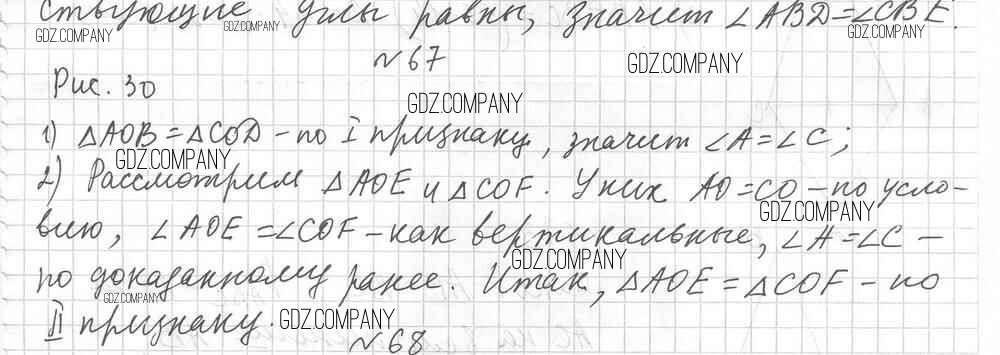 ствующие углы равны, значит ∠ABD=∠CBE.
GDZ.COMPANY GDZ.COMPANY GDZ.COMPANY
№67
GDZ.COMPANY
Рис. 30
GDZ.COMPANY
1) △AOB=△COD – по I признаку, значит ∠A=∠C;
GDZ.COMPANY
2) Рассмотрим △AOE и △COF. У них AO=CO – по усло-
GDZ.COMPANY
вию, ∠AOE=∠COF – как вертикальные, ∠A=∠C –
GDZ.COMPANY
по доказанному ранее. Итак, △AOE=△COF – по
GDZ.COMPANY
II признаку.
GDZ.COMPANY
№68